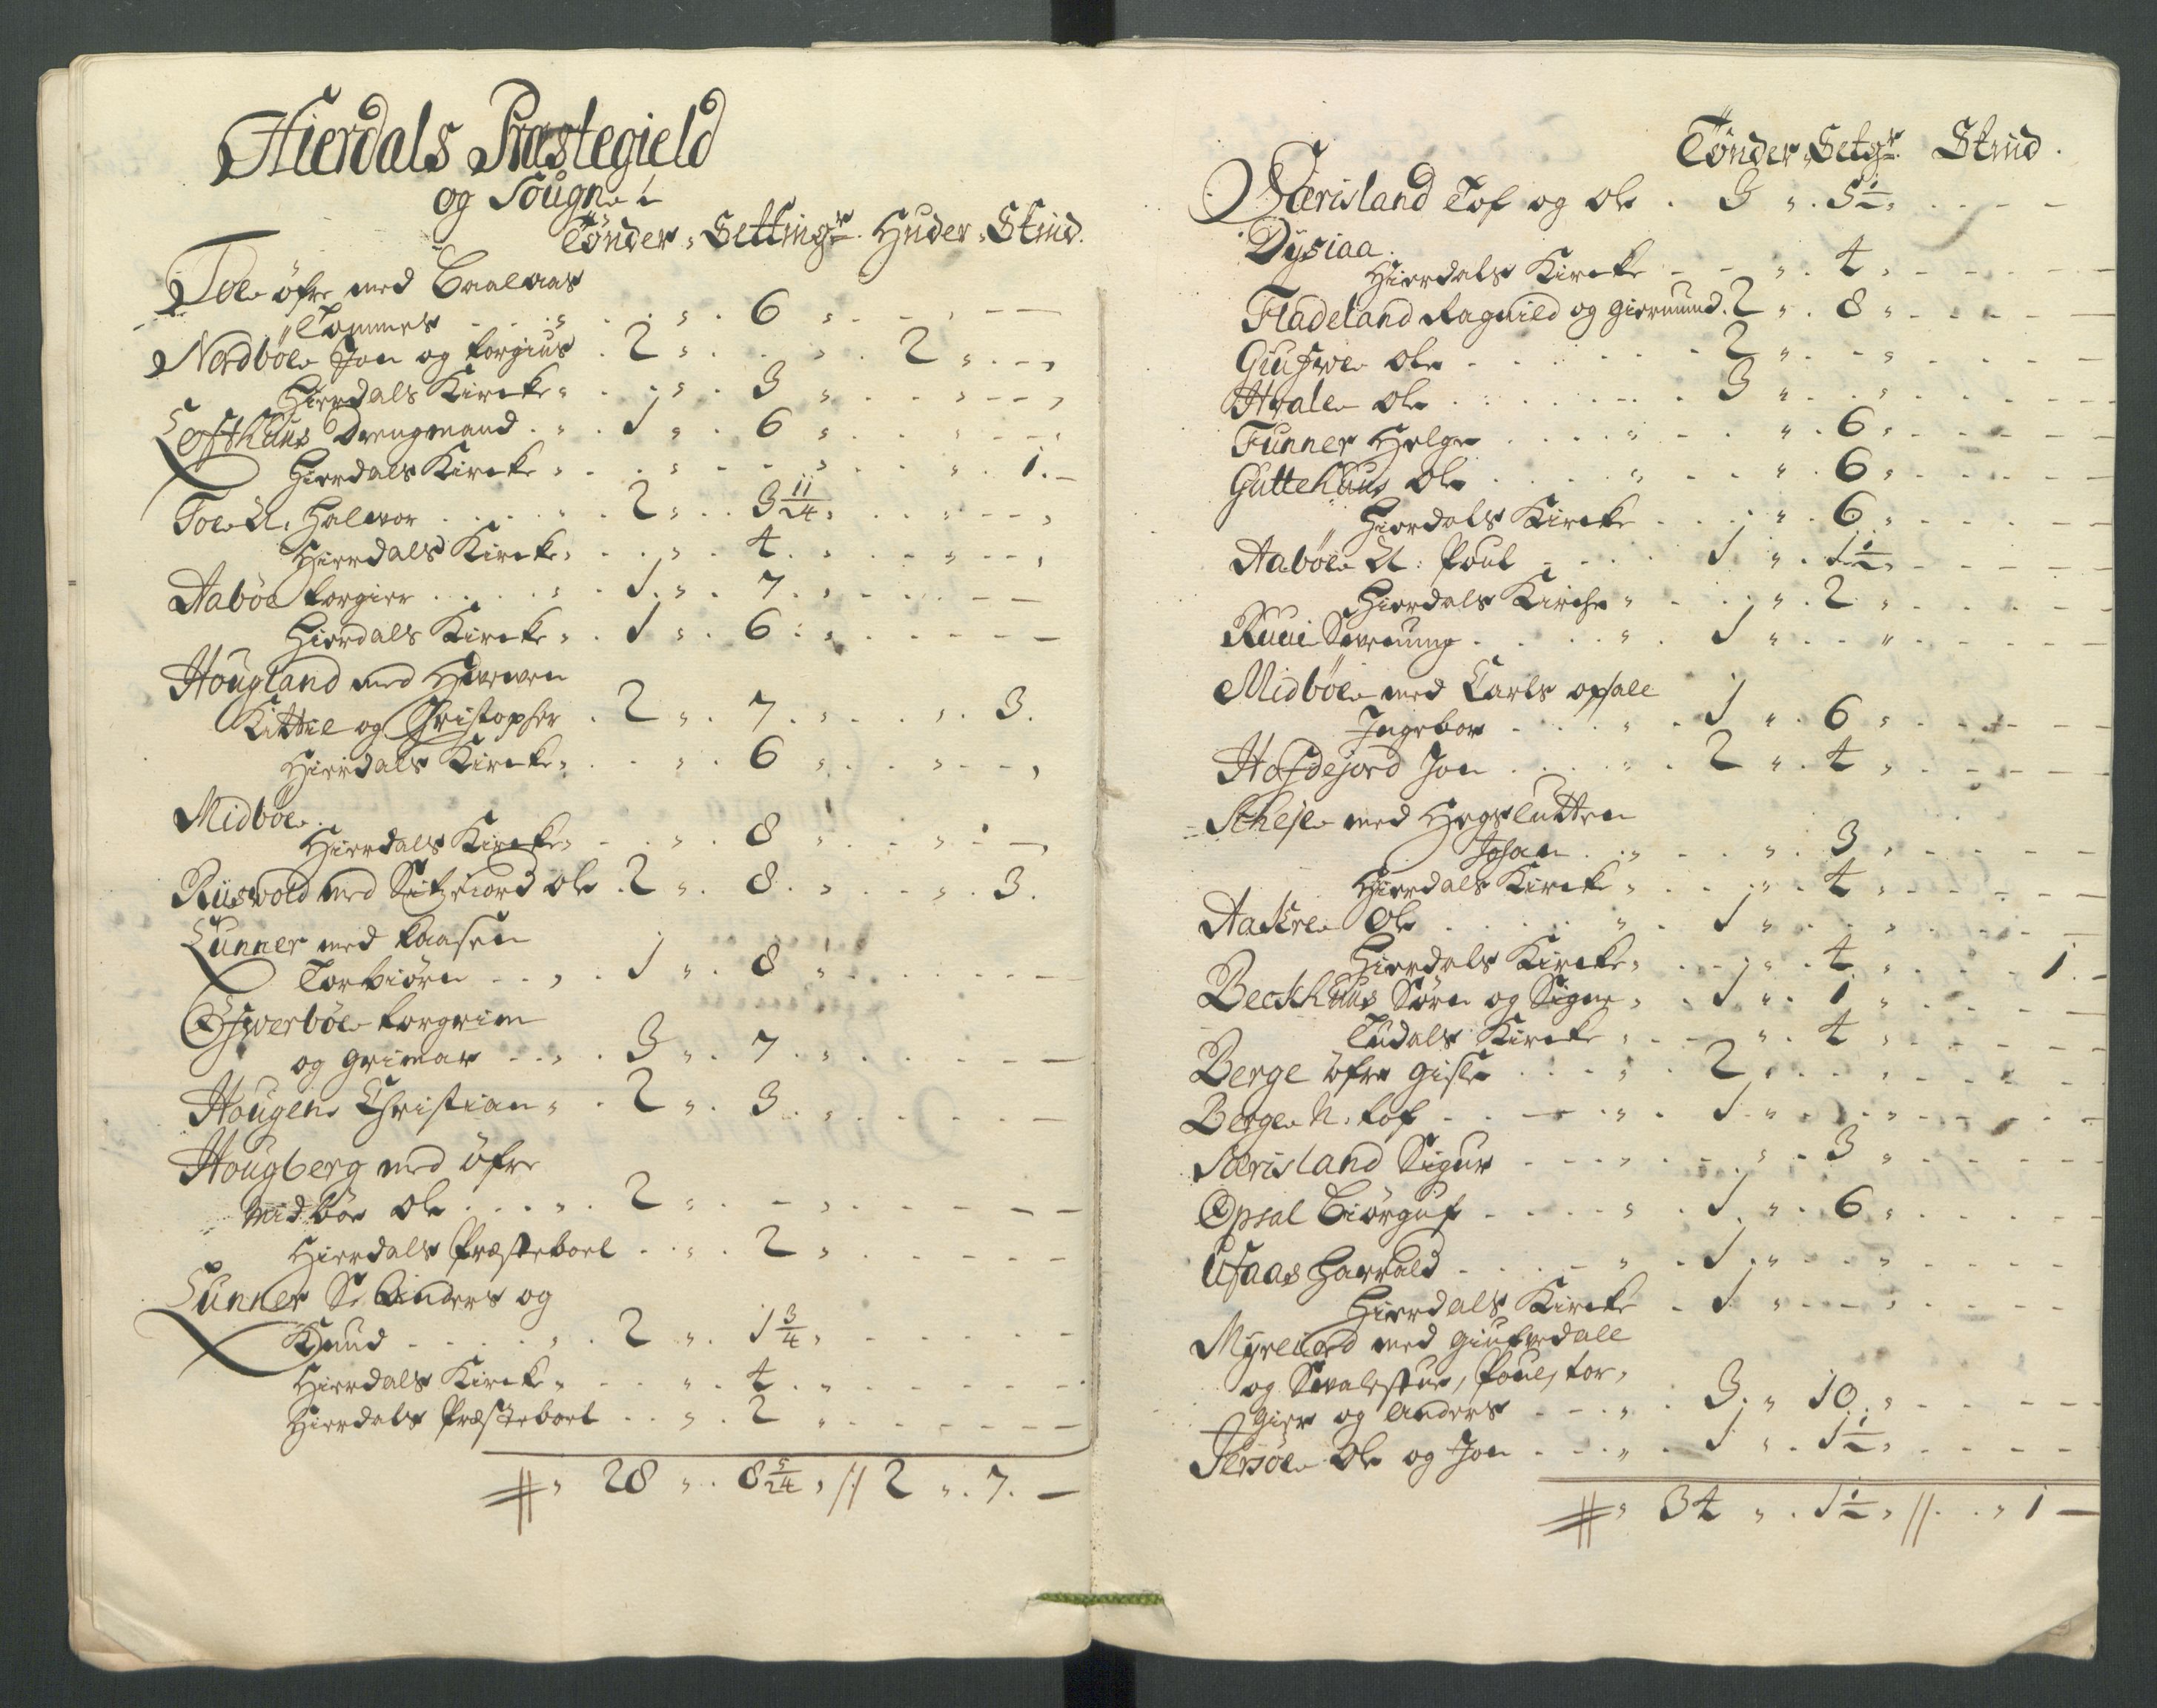 Hierdals Præstegield
og Sougne
Tønder „ Setting&#x27;r. Huder „ Skind.
Toe øfre med Baalaas
Tommes - - - „ . . „ . 6 „ - - - —
Nordbøe Jon og Torgius . 2 „ . . . „ . 2 „ . - - ,
Hierdals Kircke „ . . „ . 3 „ . . „ - - - ,
Lofthuus Drengmand . „ . 1 „ . 6 „ . . „ - - - ,
Hierdals Kircke „ . . „ - - - „ . . „ . 1. —
Toe N. Halwor . . . . . „ . 2 „ . 3 11/24 „ . . „ - - ,
Hierdals Kircke „ . . „ . 4 . „ . - - „ - - ,
Aabøe Torgier . . . . „ . 1 . „ . 7 . „ . - - - —
Hierdals Kircke „ . 1 „ . 6 . „ . - - - - —
Hougland med
Kittil og Christopher . 2 „ . 7 . „ . . . „ . 3 .
Hierdals Kircke „ . . „ . 6 „ . . „ - - - ,
Midbøe .
Hierdals Kircke „ - . „ . 8 „ . . „ - - - ,
Riisvold med Ole . 2 „ . 8 . „ . . . „ . 3 .
Lunner med Taasen
Torbiørn - . , . 1 „ . 8 „ . . . . . . —
Øfwerbøe Torgrim
og Grimar - . „ . 3 „ . 7 . „ . . . . . —
Hougen Christian „ . 2 „ . 3 . „ . . . . . —
Hougberg med øfre
Midbøe Ole . . . „ . 2 „ . - - „ . - - - —
Hierdals Præsteboel . . „ . 2 „ . - . . - - —
Lunner S. Anders og
Knud . - . . . „ . 2 „ . 1 3/4 „ . - - - - —
Hierdals Kircke „ - . „ . 4 . „ . - - - - —
Hierdals Præsteboel . . „ . 2 „ . - - - - —
# „ 28 „ . 8 5/24 „ // 2 „ . 7 . —
Tønder „ Setg&#x27;r. Skind .
Særisland Tof og Ole . 3 „ . 5 1/2 „ . - - -
Dysiaa .
Hierdals Kircke - - - „ . 4 „ - - - - —
Fladeland Ragnild og Giermund . 2 „ . 8 „ . - - - —
Giufwe Ole - . . . . . . 2 „ . - „ . . . . —
Hvale Ole . . . . . . . . 3 „ . . „ . - - - —
Funner Helge . . . . „ . - . „ . 6 „ . - - - —
Guttehuus Ole . . . . . „ . . . „ . 6 „ . - - - —
Hierdals Kircke . . . . „ . 6 „ . - - - —
Aabøe N: Poul - . . . . 1 „ . 1 1/2 „ . - - - —
Hierdals Kirche „ - . . „ . 2 „ . . . - —
Ruui Swenung . . . . . „ . 1 „ . . . „ . . . - - —
Midbøe med Carls opsall
Ingebor - . . . „ . 1 „ . 6 „ . - - - —
Hofdejord Jon . . . . „ . 2 „ . 4 „ . - - - —
Skeje med Hegslutten
Johan . . „ . - . „ . 3 „ . - - - —
Hierdals Kircke „ . . . „ . 4 „ . - - - —
Aakre Ole . . . . . „ . 1 „ . . . „ . - - —
Hierdals Kircke „ . . „ „ . 4 „ . - . . 1 . —
Beckhuus Sørn og Signe „ . 1 „ . 1 „ . - - - —
Tudals Kircke „ . - - „ . 4 „ . - - - —
Berge øfre Gisle . . . „ . 2 „ . . . „ . - . -
Berge N. Tof - . - — . „ . 1 . „ . . . „ . . - -
Særisland Sigur - - - „ . - . „ . 3 „ . - - - —
Opsal Biørguf - . . . . „ . 1 . „ . 6 „ . . . . —
Ufaas Harrald . . . . - „ . 1 . „ . . . „ . - . -
Hierdals Kircke . 1 „ . - - „ . - - -
Myrejord med Giufwedall
og Swalestue, Poul, Tor,
gier og Anders - - . „ . 3 . „ 10 „ . - - - —
Persøe Ole og Jon - - . „ . 1 „ . 1 1/2 „ . - - - —
# „ 34 „ . 1 1/2 „ // . . „ 1 —